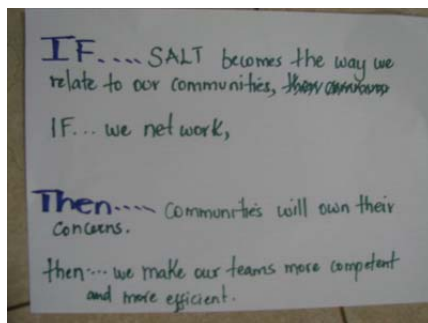 IF.... SALT becomes the way we
relate to our communities,
IF... we net work,
Then.... Communities will own their
concerns.
then.... we make our teams more competent
and more efficient.